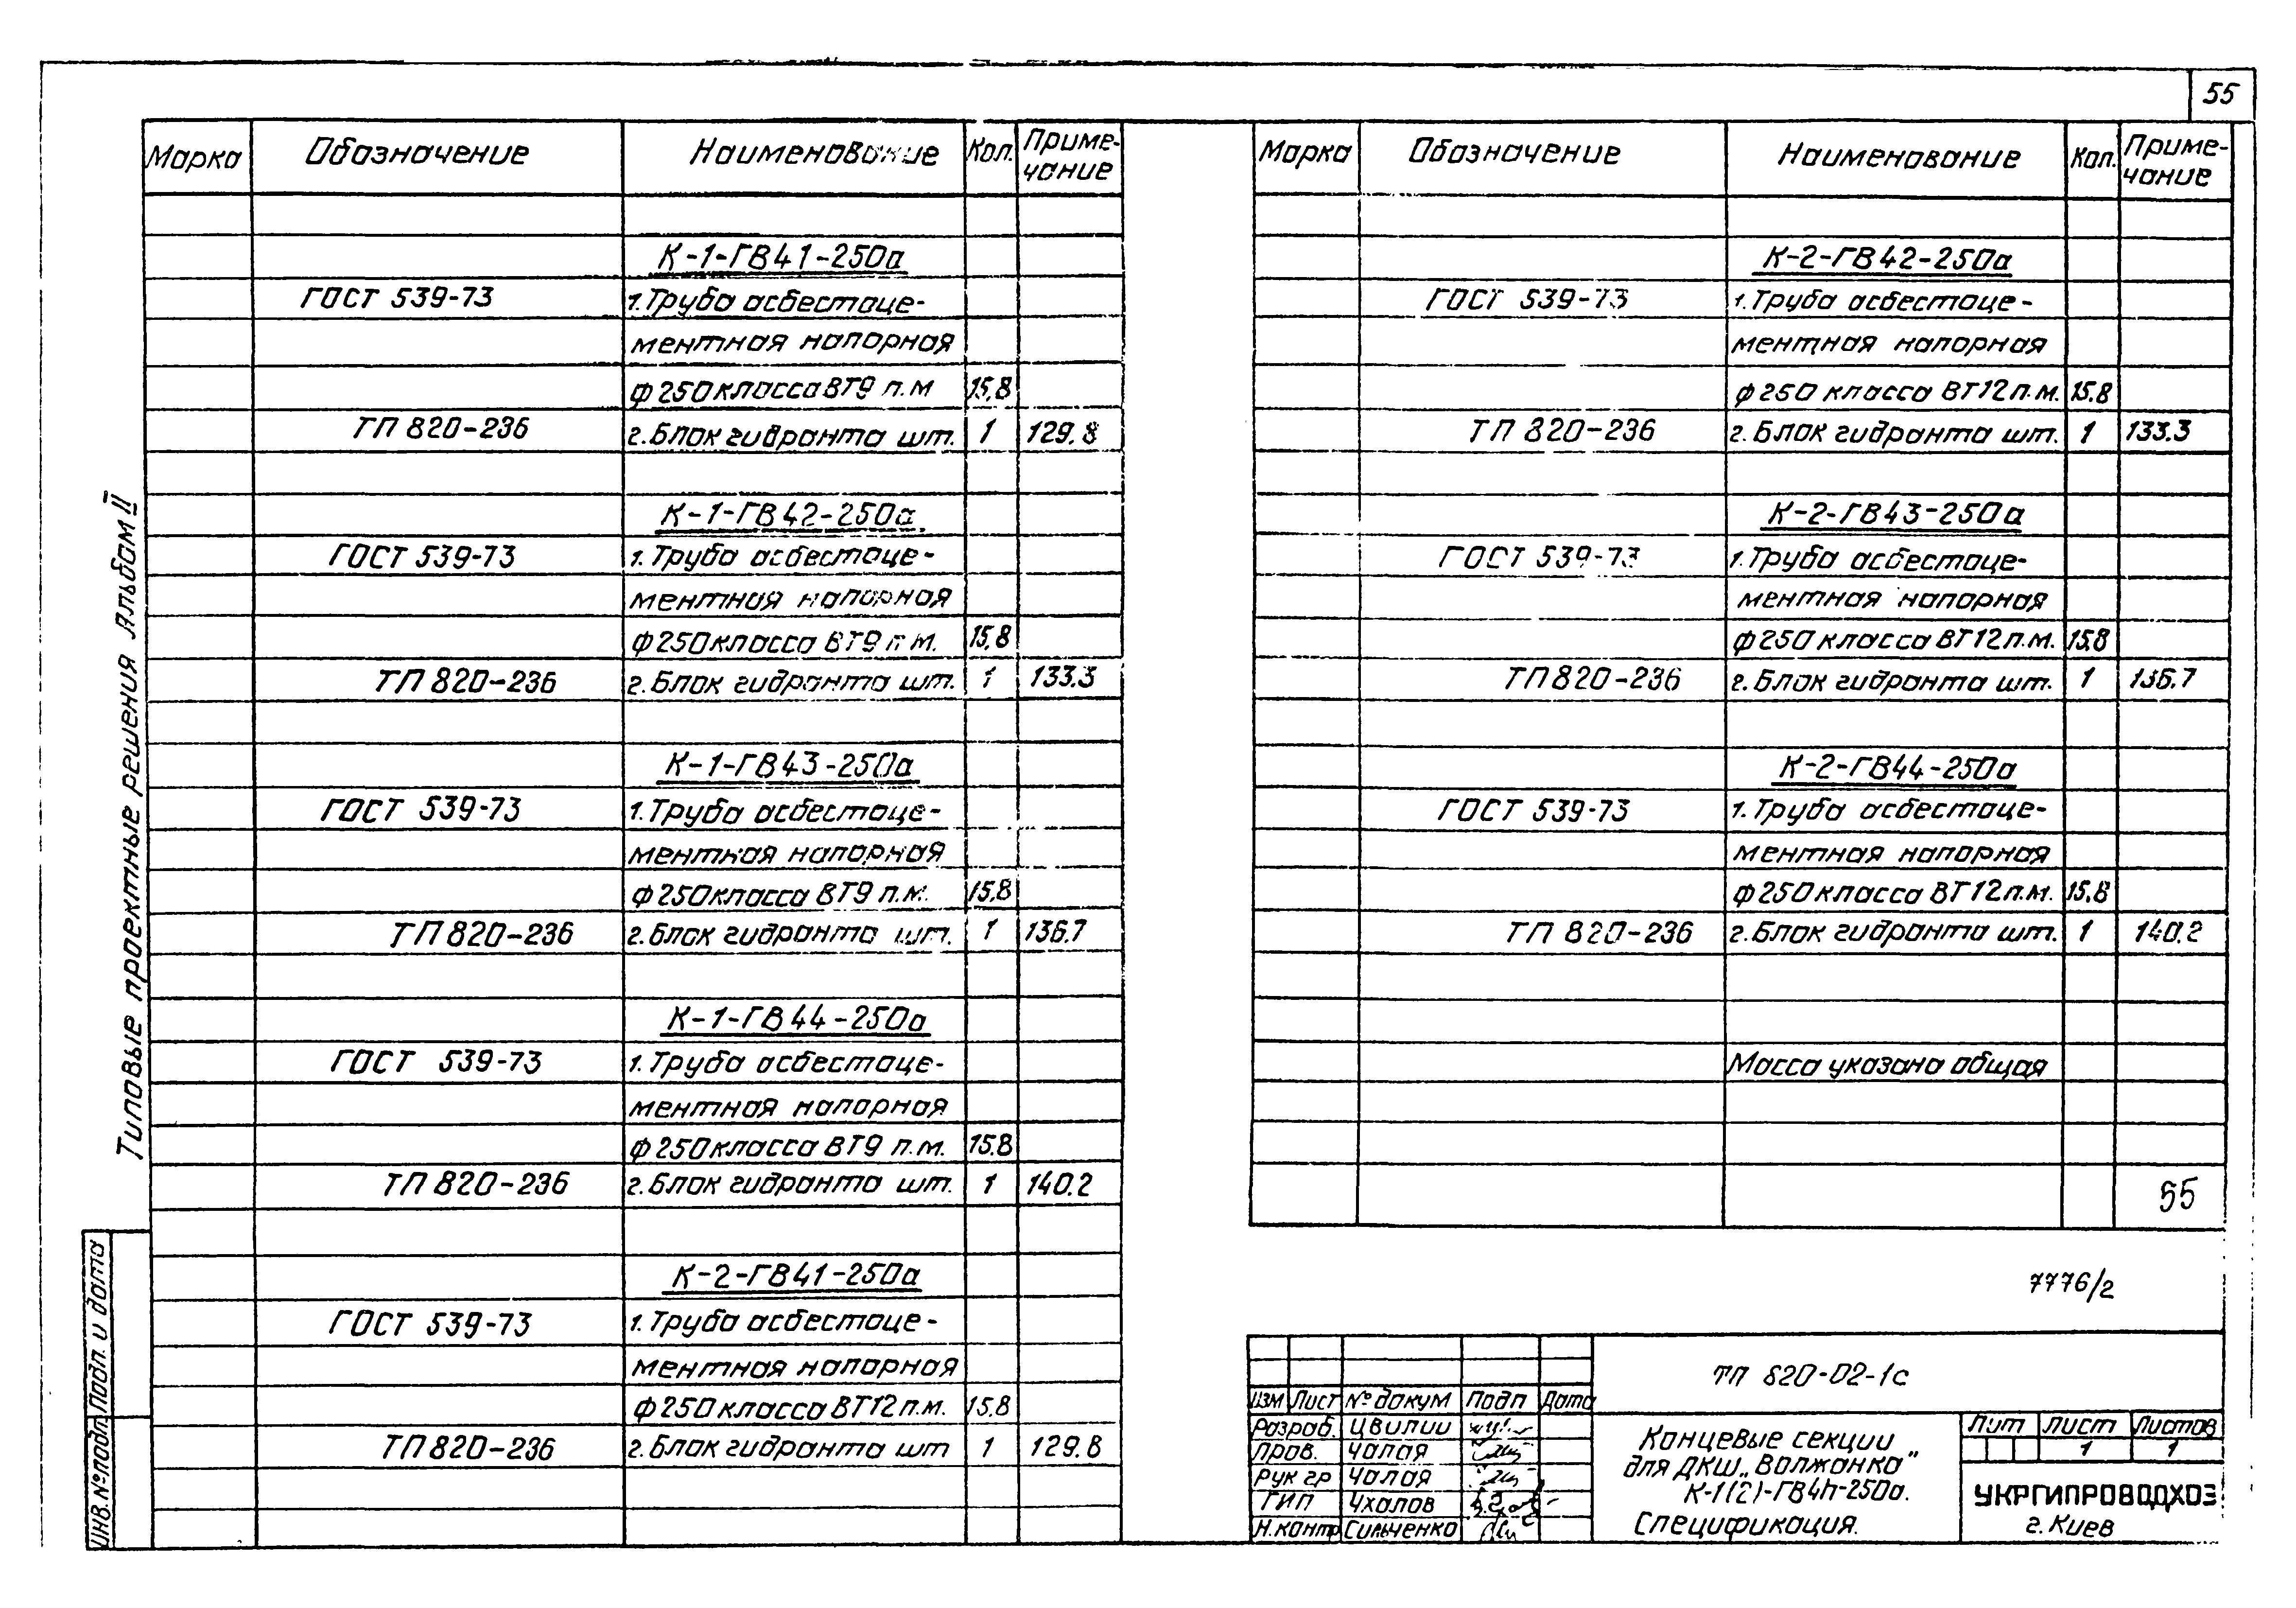 55
Типовые проектные решения Альбом II
Инв. № подл. Подп. и дата
Марка Обозначение Наименование Кол. Приме-
чание
К-1-ГВ41-250а
ГОСТ 539-73 1. Труба асбестоце-
ментная напорная
ф 250 класса ВТ9 п.м 15,8
ТП 820-236 2. Блок гидранта шт. 1 129.8
К-1-ГВ42-250а
ГОСТ 539-73 1. Труба асбестоце-
ментная напорная
ф 250 класса ВТ9 п.м. 15,8
ТП 820-236 2. Блок гидранта шт. 1 133.3
К-1-ГВ43-250а
ГОСТ 539-73 1. Труба асбестоце-
ментная напорная
ф 250 класса ВТ9 п.м. 15,8
ТП 820-236 2. Блок гидранта шт. 1 136.7
К-1-ГВ44-250а
ГОСТ 539-73 1. Труба асбестоце-
ментная напорная
ф 250 класса ВТ9 п.м. 15.8
ТП 820-236 2. Блок гидранта шт. 1 140.2
К-2-ГВ41-250а
ГОСТ 539-73 1. Труба асбестоце-
ментная напорная
ф 250 класса ВТ12 п.м. 15.8
ТП 820-236 2. Блок гидранта шт 1 129.8
Марка Обозначение Наименование Кол. Приме-
чание
К-2-ГВ42-250а
ГОСТ 539-73 1. Труба асбестоце-
ментная напорная
ф 250 класса ВТ12 п.м. 15.8
ТП 820-236 2. Блок гидранта шт. 1 133.3
К-2-ГВ43-250а
ГОСТ 539-73 1. Труба асбестоце-
ментная напорная
ф 250 класса ВТ12 п.м. 15.8
ТП 820-236 2. Блок гидранта шт. 1 136.7
К-2-ГВ44-250а
ГОСТ 539-73 1. Труба асбестоце-
ментная напорная
ф 250 класса ВТ12 п.м. 15.8
ТП 820-236 2. Блок гидранта шт. 1 140.2
Масса указана общая
55
7776/2
ТП 820-02-1с
Изм Лист № докум Подп Дата
Разраб. Цвилии
Пров. Чалая
Рук гр Чалая
ГИП Чхалов
Н.контр Сильченко
Концевые секции
для ДКШ „Волжанка"
К-1(2)-ГВ4h-250а.
Спецификация.
Лит Лист Листов
1 1
УКРГИПРОВОДХОЗ
г. Киев